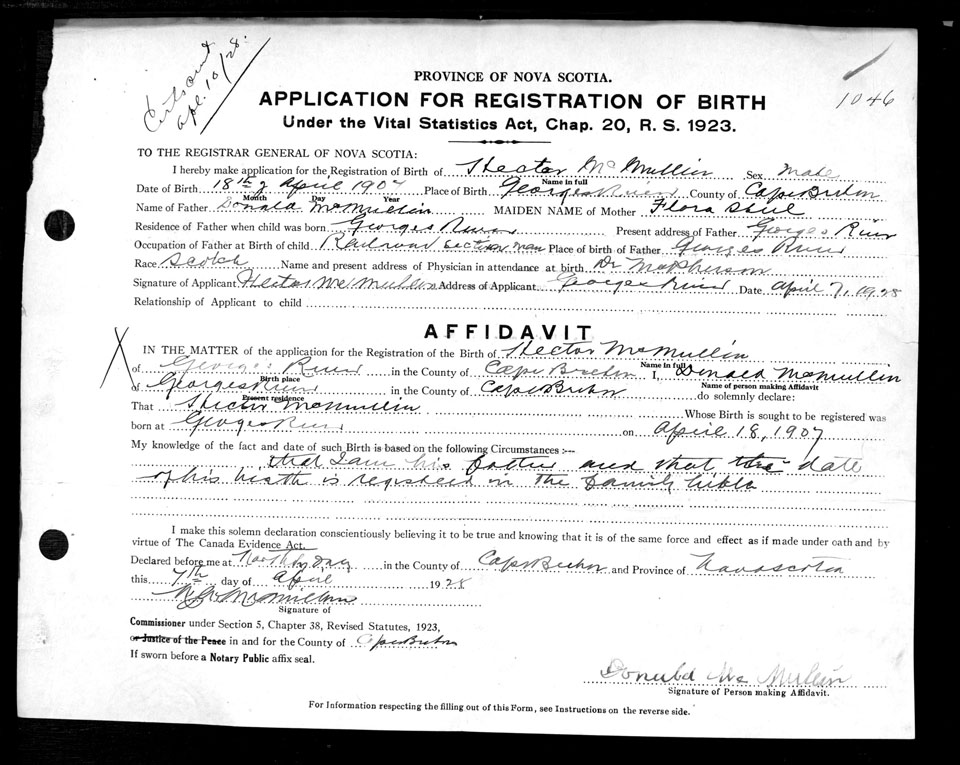 Cert sent
Apl. 10/28.
1046
PROVINCE OF NOVA SCOTIA.
APPLICATION FOR REGISTRATION OF BIRTH
Under the Vital Statistics Act, Chap. 20, R. S. 1923.
TO THE REGISTRAR GENERAL OF NOVA SCOTIA:
I hereby make application for the Registration of Birth of Hector McMullin Sex Male
Name in full
Date of Birth 18th of April 1907 Place of Birth Georges River County of Cape Breton
Month Day Year
Name of Father Donald McMullin MAIDEN NAME of Mother Flora
Residence of Father when child was born Georges River Present address of Father Georges River
Occupation of Father at Birth of child Railroad section man Place of birth of Father Georges River
Race Scotch Name and present address of Physician in attendance at birth Dr McPherson
Signature of Applicant Hector McMullin Address of Applicant Georges River Date April 7, 1928
Relationship of Applicant to child
AFFIDAVIT
IN THE MATTER of the application for the Registration of the Birth of Hector McMullin
Name in full
of Georges River in the County of Cape Breton I, Donald McMullin
Birth place Name of person making Affidavit
of Georges River in the County of Cape Breton do solemnly declare:
Present residence
That Hector McMullin Whose Birth is sought to be registered was
born at Georges River on April 18, 1907
My knowledge of the fact and date of such Birth is based on the following Circumstances :--
that I am his father and that the date
of his birth is registered in the Family bible
I make this solemn declaration conscientiously believing it to be true and knowing that it is of the same force and effect as if made under oath and by
virtue of The Canada Evidence Act.
Declared before me at North Sydney in the County of Cape Breton and Province of Nova Scotia
this 7th day of April 1928
McMillan
Signature of
Commissioner under Section 5, Chapter 38, Revised Statutes, 1923,
or Justice of the Peace in and for the County of Cape Breton
If sworn before a Notary Public affix seal.
Donald Mc Mullin
Signature of Person making Affidavit.
For Information respecting the filling out of this Form, see Instructions on the reverse side.